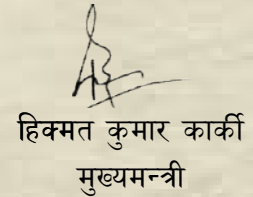 हिक्मत कुमार कार्की
मुख्यमन्त्री